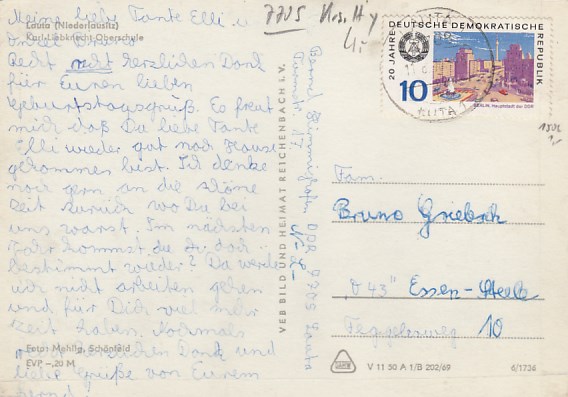 Meine liebe Tante Elli u.
Onkel Bruno
Lauta (Niederlausitz)
Karl-Liebknecht-Oberschule
Recht recht herzlichen Dank
für Euren lieben
Geburtstagsgruß. Es freut
mich daß Du liebe Tante
Elli wieder gut nach Hause
gekommen bist. Ich denke
noch gern an die schöne
Zeit zurück wo Du bei
uns warst. Im nächsten
Jahr kommst du ja doch
bestimmt wieder? Da werde
ich nicht arbeiten gehen
und für Dich viel mehr
Zeit haben. Nochmals
Foto: Mehlig, Schönfeld
herzlichen Dank und
EVP -,20 M
liebe Grüße von Eurem
Bernd
VEB BILD UND HEIMAT REICHENBACH i. V.
Bernd
DDR 7705 Lauta
7705
20 JAHRE DEUTSCHE DEMOKRATISCHE REPUBLIK
10
BERLIN, Hauptstadt der DDR
LAUTA
Fam.
Bruno
"D 43" Essen-Steele
10
V 11 50 A 1/B 202/69
6/1736